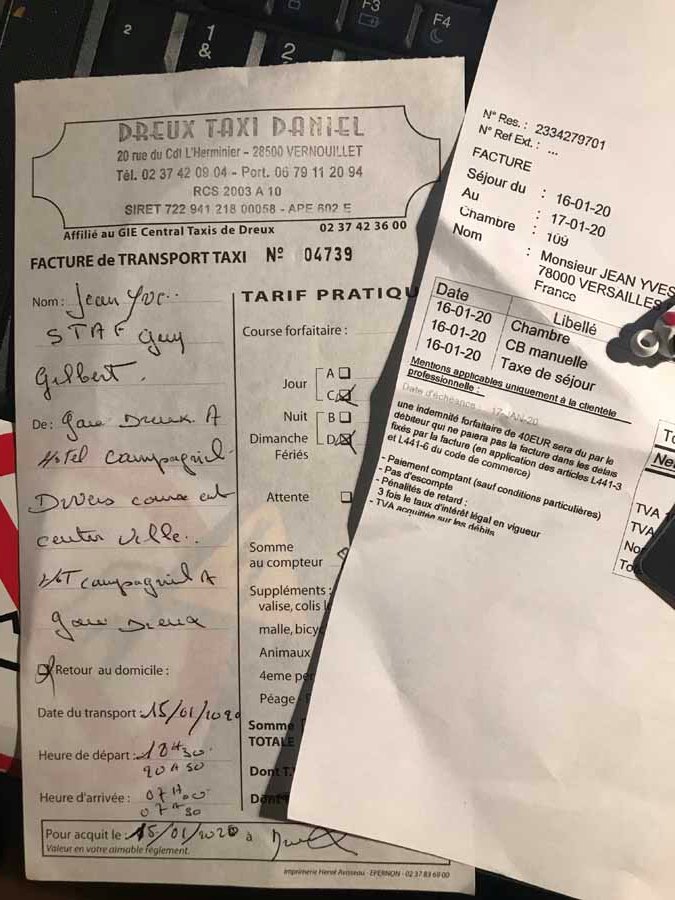 F3
F4
2
1
&
2
DREUX TAXI DANIEL
20 rue du Cdt L'Herminier - 28500 VERNOUILLET
Tél. 02 37 42 09 04 - Port. 06 79 11 20 94
RCS 2003 A 10
SIRET 722 941 218 00058 - APE 602 E
Affilié au GIE Central Taxis de Dreux 02 37 42 36 00
FACTURE de TRANSPORT TAXI Nº 04739
Nom : Jean Yve
STAF Guy
Gilbert.
De : Gare Dreux. A
Hotel Campagniel
Divers course est
center ville..
HOT campagniel A
Gare Dreux
Retour au domicile :
Date du transport : 15/01/2020
Heure de départ : 18H30
20H50
Heure d'arrivée : 07H00
07H30
Pour acquit le : 15/01/2020 à
Valeur en votre aimable règlement.
Imprimerie Hervé Avisseau - EPERNON - 02 37 83 69 00
TARIF PRATIQU
Course forfaitaire :
Jour
A
C
Nuit
B
Dimanche
Fériés
D
Attente
Somme
au compteur
Suppléments :
valise, colis
malle, bicyc
Animaux
4eme per
Péage -
Somme
TOTALE
Dont T.
Dont
N° Res. : 2334279701
N° Ref Ext. : ...
FACTURE
Séjour du : 16-01-20
Au : 17-01-20
Chambre : 109
Nom : Monsieur JEAN YVES
78000 VERSAILLES
France
Date Libellé
16-01-20 Chambre
16-01-20 CB manuelle
16-01-20 Taxe de séjour
Mentions applicables uniquement à la clientèle
professionnelle :
Date d'échéance : 17-JAN-20
une indemnité forfaitaire de 40EUR sera du par le
débiteur qui ne paiera pas la facture dans les délais
fixés par la facture (en application des articles L441-3
et L441-6 du code de commerce)
- Paiement comptant (sauf conditions particulières)
- Pas d'escompte
- Pénalités de retard :
3 fois le taux d'intérêt légal en vigueur
- TVA acquittée sur les débits
TVA
TVA